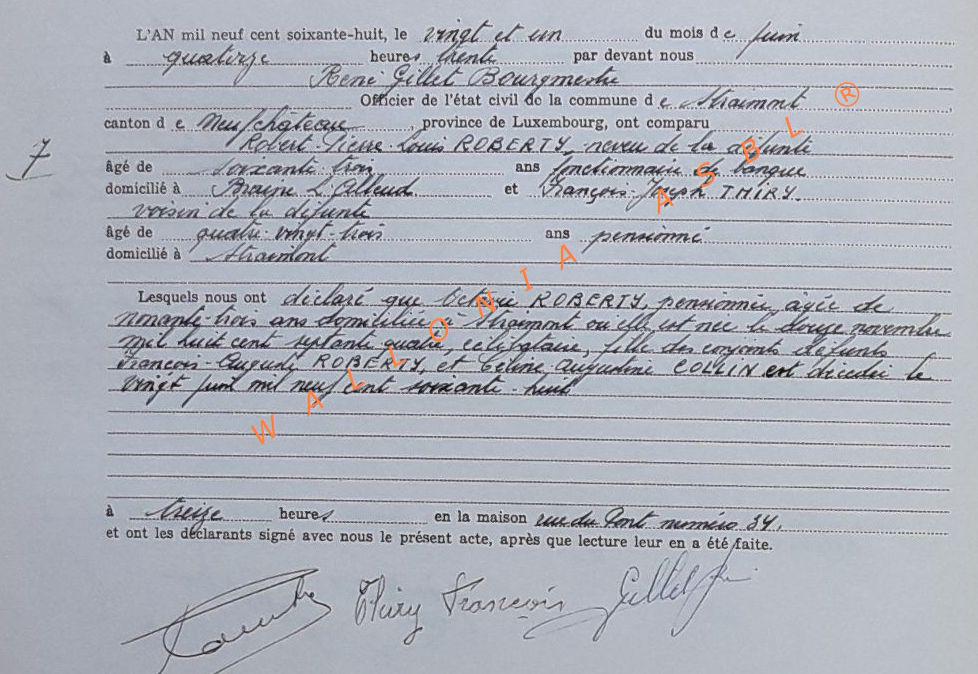 L'AN mil neuf cent soixante-huit, le vingt et un du mois de juin
à quatorze heures trente par devant nous
René Gillet Bourgmestre
Officier de l'état civil de la commune de Straimont ®
canton de Neufchâteau province de Luxembourg, ont comparu
Robert-Pierre-Louis ROBERTY, neveu de la défunte
7
âgé de soixante-trois ans fonctionnaire de banque
domicilié à Braine L'Alleud et François-Joseph THIRY
voisin de la défunte
âgé de quatre-vingt-trois ans pensionné
domicilié à Straimont
Lesquels nous ont déclaré que Octavie ROBERTY, pensionnée, âgée de
nonante-trois ans domiciliée à Straimont ou elle est née le douze novembre
mil huit cent septante quatre, célibataire, fille des conjoints défunts
François-Auguste ROBERTY, et Céline Augustine COLLIN est décédée le
vingt juin mil neuf cent soixante-huit
WALLONIA ASBL
à treize heures en la maison rue du Pont numéro 34.
et ont les déclarants signé avec nous le présent acte, après que lecture leur en a été faite.
Thiry François Gillet